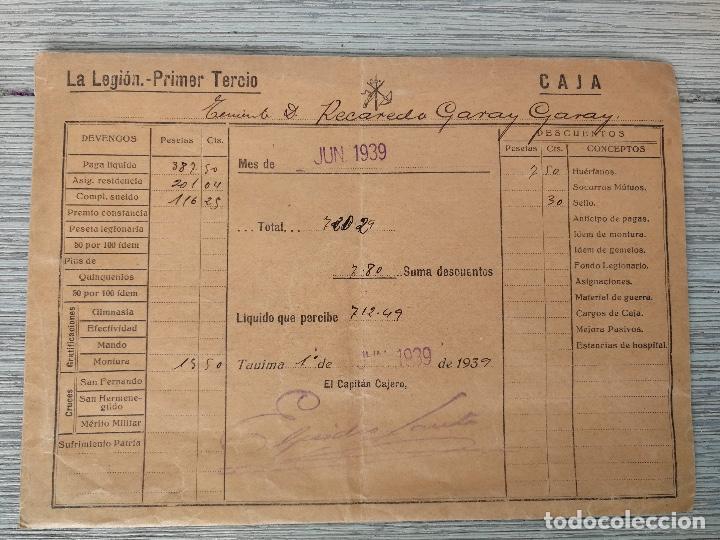 La Legión.-Primer Tercio
CAJA
Teniente D. Recaredo Garay Garay.
DEVENGOS Pesetas Cts.
Paga líquido 387 50
Asig. residencia 201 04
Compl. sueldo 116 25
Premio constancia
Peseta legionaria
50 por 100 ídem
Plus de
Quinquenios
50 por 100 ídem
Gratificaciones
Gimnasia
Efectividad
Mando
Montura 15 50
Cruces
San Fernando
San Hermene-
gildo
Mérito Militar
Sufrimiento Patria
Mes de JUN. 1939
...Total... 720 29
7.80 Suma descuentos
Líquido que percibe 712.49
Tauima 1º de JUN. 1939 de 1939
El Capitán Cajero,
DESCUENTOS
Pesetas Cts. CONCEPTOS
7 50 Huérfanos.
Socorros Mútuos.
30 Sello.
Anticipo de pagas.
Idem de montura.
Idem de gemelos.
Fondo Legionario.
Asignaciones.
Material de guerra.
Cargos de Caja.
Mejora Pasivos.
Estancias de hospital.
todocoleccion.net